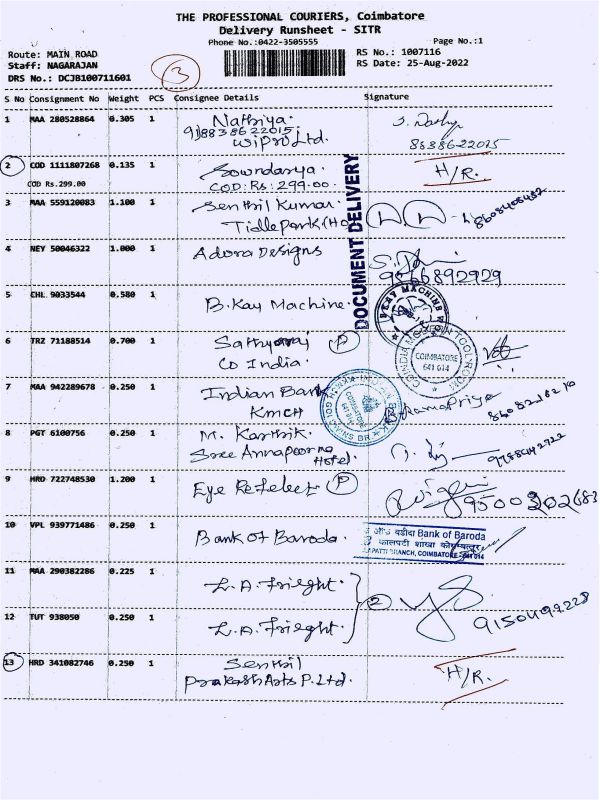 THE PROFESSIONAL COURIERS, Coimbatore
Delivery Runsheet - SITR
Phone No.:0422-3505555
Page No.:1
Route: MAIN ROAD
Staff: NAGARAJAN
DRS No.: DCJB100711601
3
RS No.: 1007116
RS Date: 25-Aug-2022
S No Consignment No Weight PCS Consignee Details Signature
1 MAA 280528864 0.305 1 Nathiya.
918838622015;
Wipro Ltd.
8838622015
2 COD 1111807268 0.135 1 Sowndarya.
COD Rs.299.00 COD: Rs: 299.00.
H/R.
DOCUMENT DELIVERY
3 MAA 559120083 1.100 1 Senthil Kumar.
Tidle Park
4 NEY 50046322 1.000 1 Adora Designs
9566892929
5 CHL 9033544 0.580 1 B.Kay Machine.
B.KAY MACHINE
6 TRZ 71188514 0.700 1 Sathyaraj P
Co India.
COIMBATORE
641 014
7 MAA 942289678 0.250 1 Indian Bank
KMCH
8608218210
8 PGT 6100756 0.250 1 M. Karthik.
Sree Annapoorna
Hotel.
9 HRD 722748530 1.200 1 Eye Refelect P
9500302683
10 VPL 939771486 0.250 1 Bank of Baroda.
बड़ौदा Bank of Baroda
शाखा कोयम्बत्तूर
BRANCH, COIMBATORE-641 014
11 MAA 290382286 0.225 1 L.A. Frieght.
2
9150499228
12 TUT 938050 0.250 1 L.A. Frieght.
13 HRD 341082746 0.250 1 Senthil
Prakash Arts P. Ltd.
H/R.